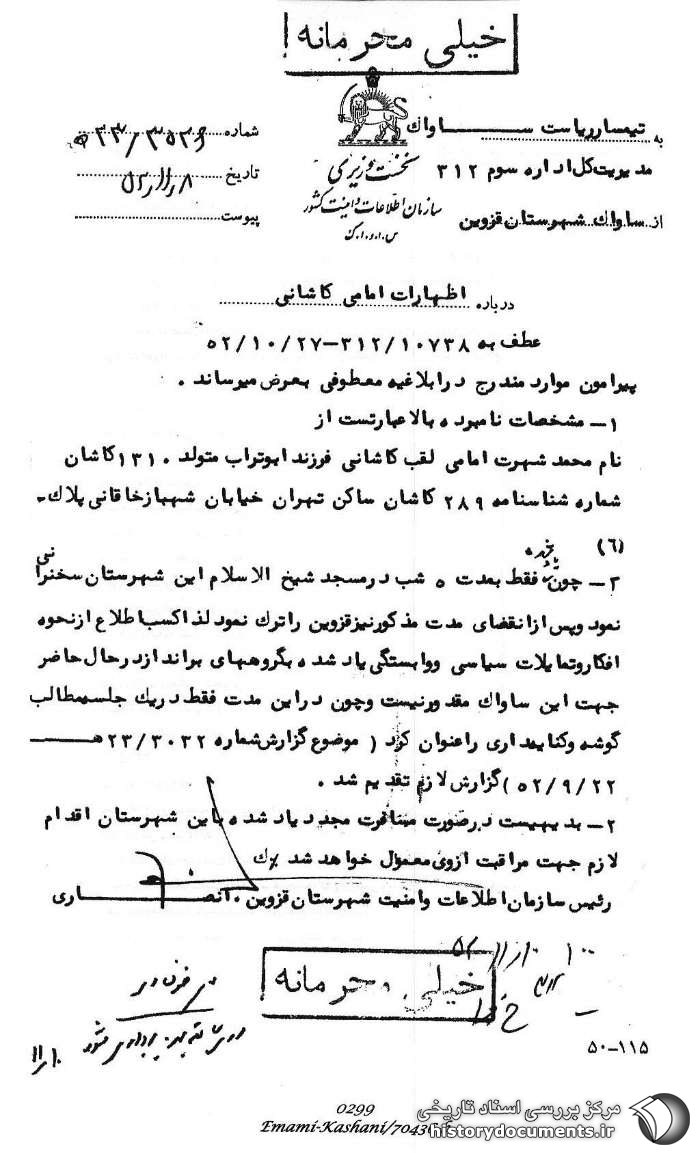 خیلی محرمانه !
به تیمسار ریاست ســــاواك
مدیریت کل اداره سوم ۳۱۲
از ساواك شهرستان قزوین
نخست وزیری
سازمان اطلاعات و امنیت کشور
س.ا.و.ا.ك
شماره ۲۳/۳۵۲۶ ه
تاریخ ۵۲/۱۱/۸
پیوست
درباره اظهارات امامی کاشانی
عطف به ۳۱۲/۱۰۷۳۸-۵۲/۱۰/۲۷
پیرامون موارد مندرج در ابلاغیه معطوفی بعرض میرساند .
۱- مشخصات نامبرده بالا عبارتست از
نام محمد شهرت امامی لقب کاشانی فرزند ابوتراب متولد ۱۳۱۰ کاشان
شماره شناسنامه ۲۸۹ کاشان ساکن تهران خیابان شهباز خاقانی پلاك-
(٦)
۲- چون فقط بمدت ۵ شب در مسجد شیخ الاسلام این شهرستان سخنرانی
نمود وپس از انقضای مدت مذکور نیز قزوین را ترك نمود لذا کسب اطلاع از نحوه
افکار وتمایلات سیاسی ووابستگی یاد شده بگروههای برانداز در حال حاضر
جهت این ساواك مقدور نیست وچون در این مدت فقط در یك جلسه مطالب
گوشه وکنایه داری را عنوان کرد ( موضوع گزارش شماره ۲۳/۳۰۳۲ هـ
۵۲/۹/۲۲ ) گزارش لازم تقدیم شد .
۲- بدیهیست در صورت مسافرت مجدد یاد شده باین شهرستان اقدام
لازم جهت مراقبت از وی معمول خواهد شد ٪ك
رئیس سازمان اطلاعات وامنیت شهرستان قزوین . انصـــاری
خیلی محرمانه !
۵۰-۱۱۵
0299
Emami-Kashani/7043
مرکز بررسی اسناد تاریخی
historydocuments.ir